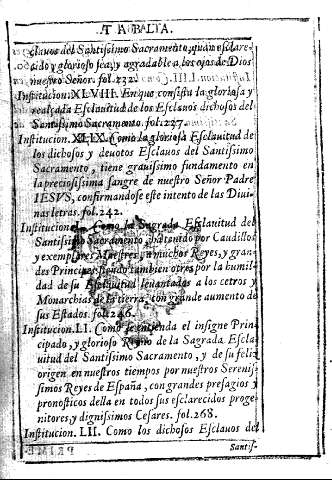 TABLA.
clauos del Santissimo Sacramento, quan esclare-
cido y glorioso sea, y agradable a los ojos de Dios
nuestro Señor. fol. 232.
Institucion. XLVIII. En que consista la gloriosa y
realçada Esclauitud de los Esclauos dichosos del
Santissimo Sacramento. fol. 227.
Institucion. XLIX. Como la gloriosa Esclauitud de
los dichosos y deuotos Esclauos del Santissimo
Sacramento, tiene grauissimo fundamento en
la preciosissima sangre de nuestro Señor Padre
IESVS, confirmandose este intento de las Diui-
nas letras. fol. 242.
Institucion. Como la Sagrada Esclauitud del
Santissimo Sacramento, teniendo por Caudillos
y exemplares Maestres, a muchos Reyes, y gran-
des Principes, siendo tambien otros por la humil
dad de su Esclauitud leuantados a los cetros y
Monarchias de la tierra, con grande aumento de
sus Estados. fol. 246.
Institucion. LI. Como se entienda el insigne Prin-
cipado, y glorioso Reyno de la Sagrada Escla-
uitud del Santissimo Sacramento, y de su feliz
origen en nuestros tiempos por nuestros Serenis-
simos Reyes de España, con grandes presagios y
pronosticos della en todos sus esclarecidos proge-
nitores, y dignissimos Cesares. fol. 268.
Institucion. LII. Como los dichosos Esclauos del
Santis-